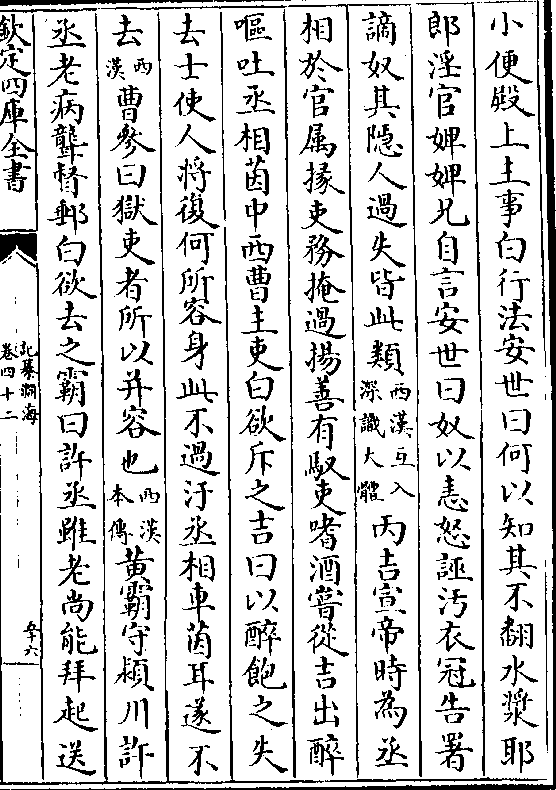 小便殿上主事白行法安世曰何以知其不翻水漿耶
郎淫官婢婢兄自言安世曰奴以恚怒誣汚衣冠告署
謫奴其隠人過失皆此類西漢互入深識大體丙吉宣帝時為丞
相於官属掾吏務掩過揚善有馭吏嗜酒嘗從吉出醉
嘔吐丞相茵中西曹主吏白欲斥之吉曰以醉飽之失
去士使人將復何所容身此不過汙丞相車茵耳遂不
去西漢曹參曰獄吏者所以并容也西漢本傳黄霸守潁川許
丞老病聾督郵白欲去之霸曰許丞雖老尚能拜起送
欽定四庫全書
記纂淵海
卷四十二